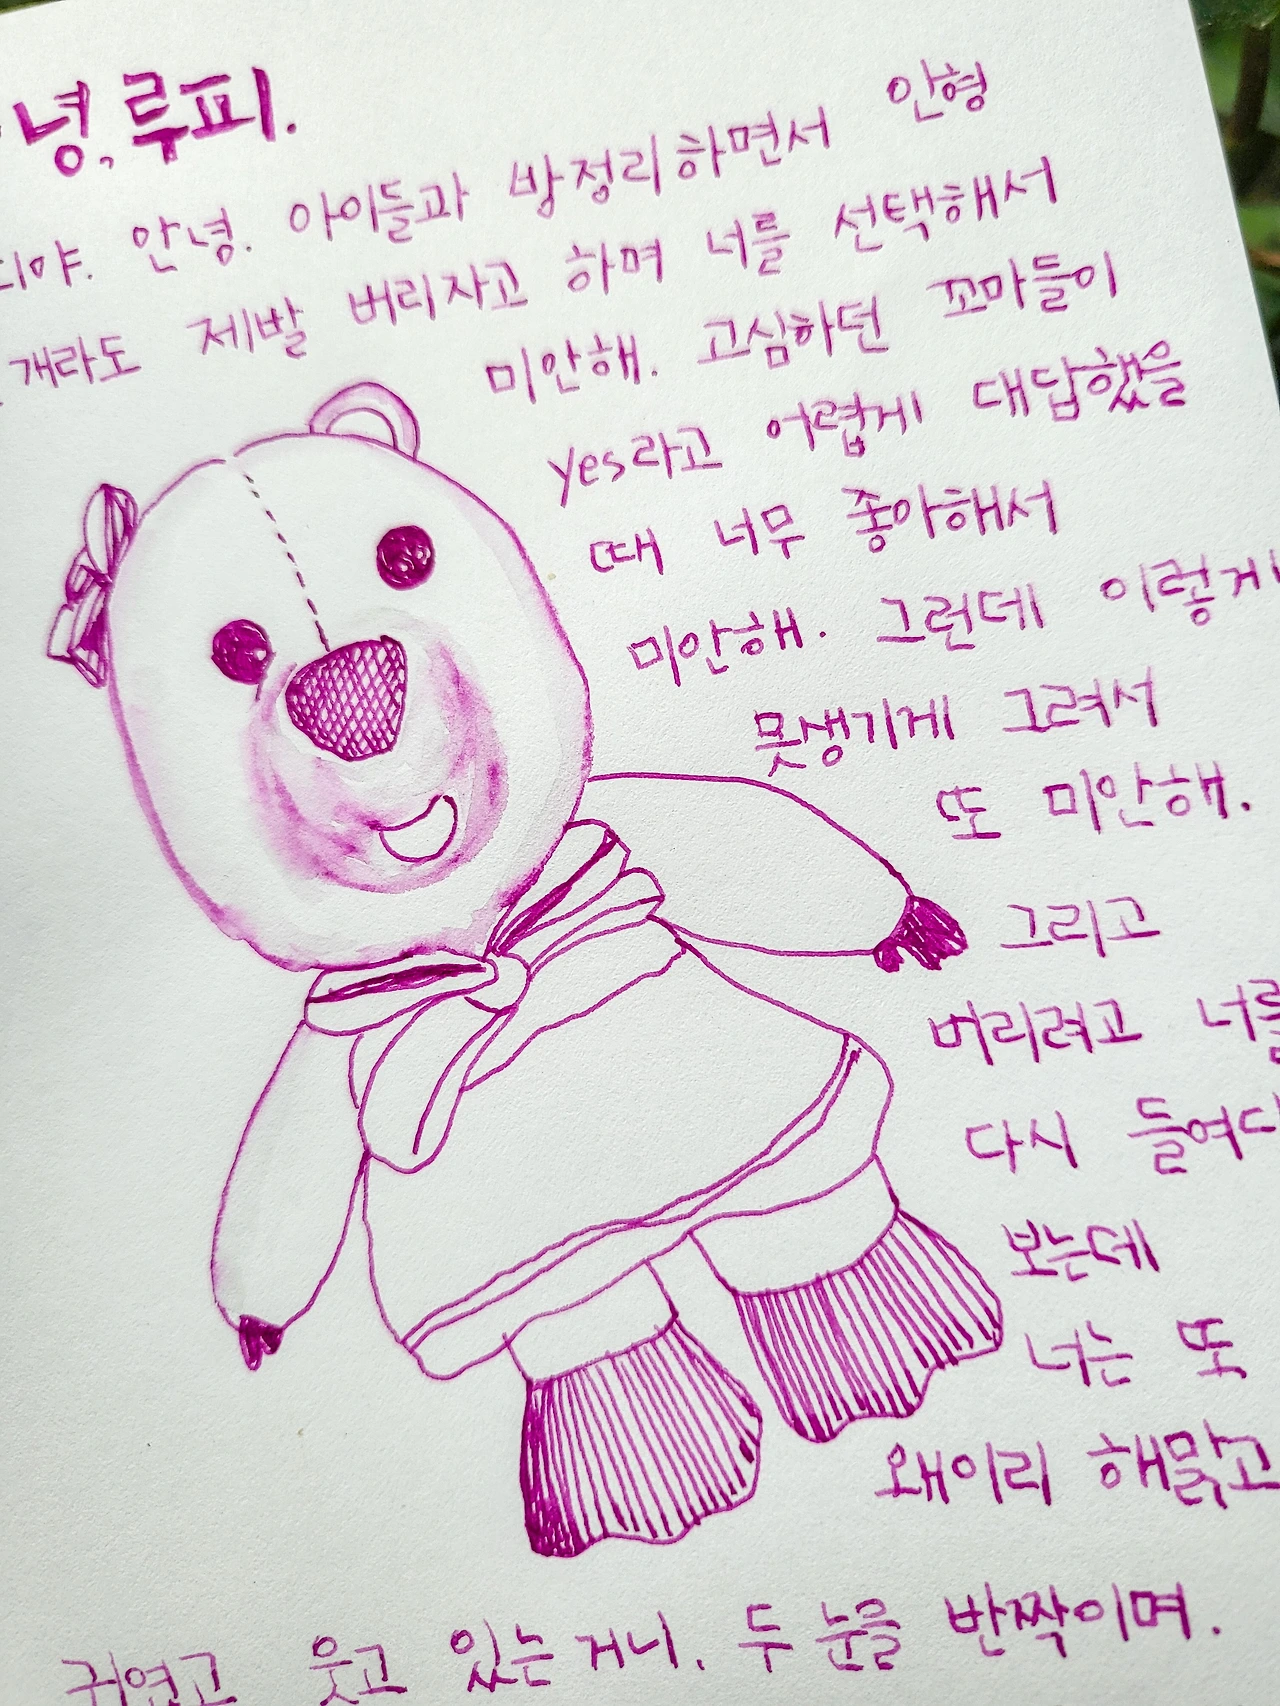 녕, 루피.
안녕. 아이들과 방정리하면서 안형
개라도 제발 버리자고 하며 너를 선택해서
미안해. 고심하던 꼬마들이
yes라고 어렵게 대답했을
때 너무 좋아해서
미안해. 그런데 이렇게
못생기게 그려서
또 미안해.
그리고
버리려고 너를
다시 들여다
보는데
너는 또
왜이리 해맑고
귀엽고 웃고 있는거니. 두 눈을 반짝이며.